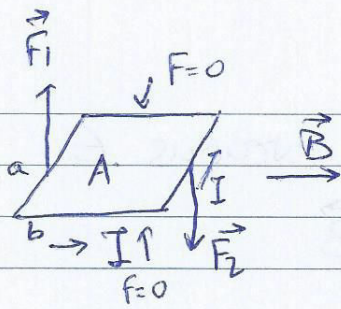 F⃗1
F=0
a
A
B⃗
I
b
→ I ↑
F⃗2
f=0